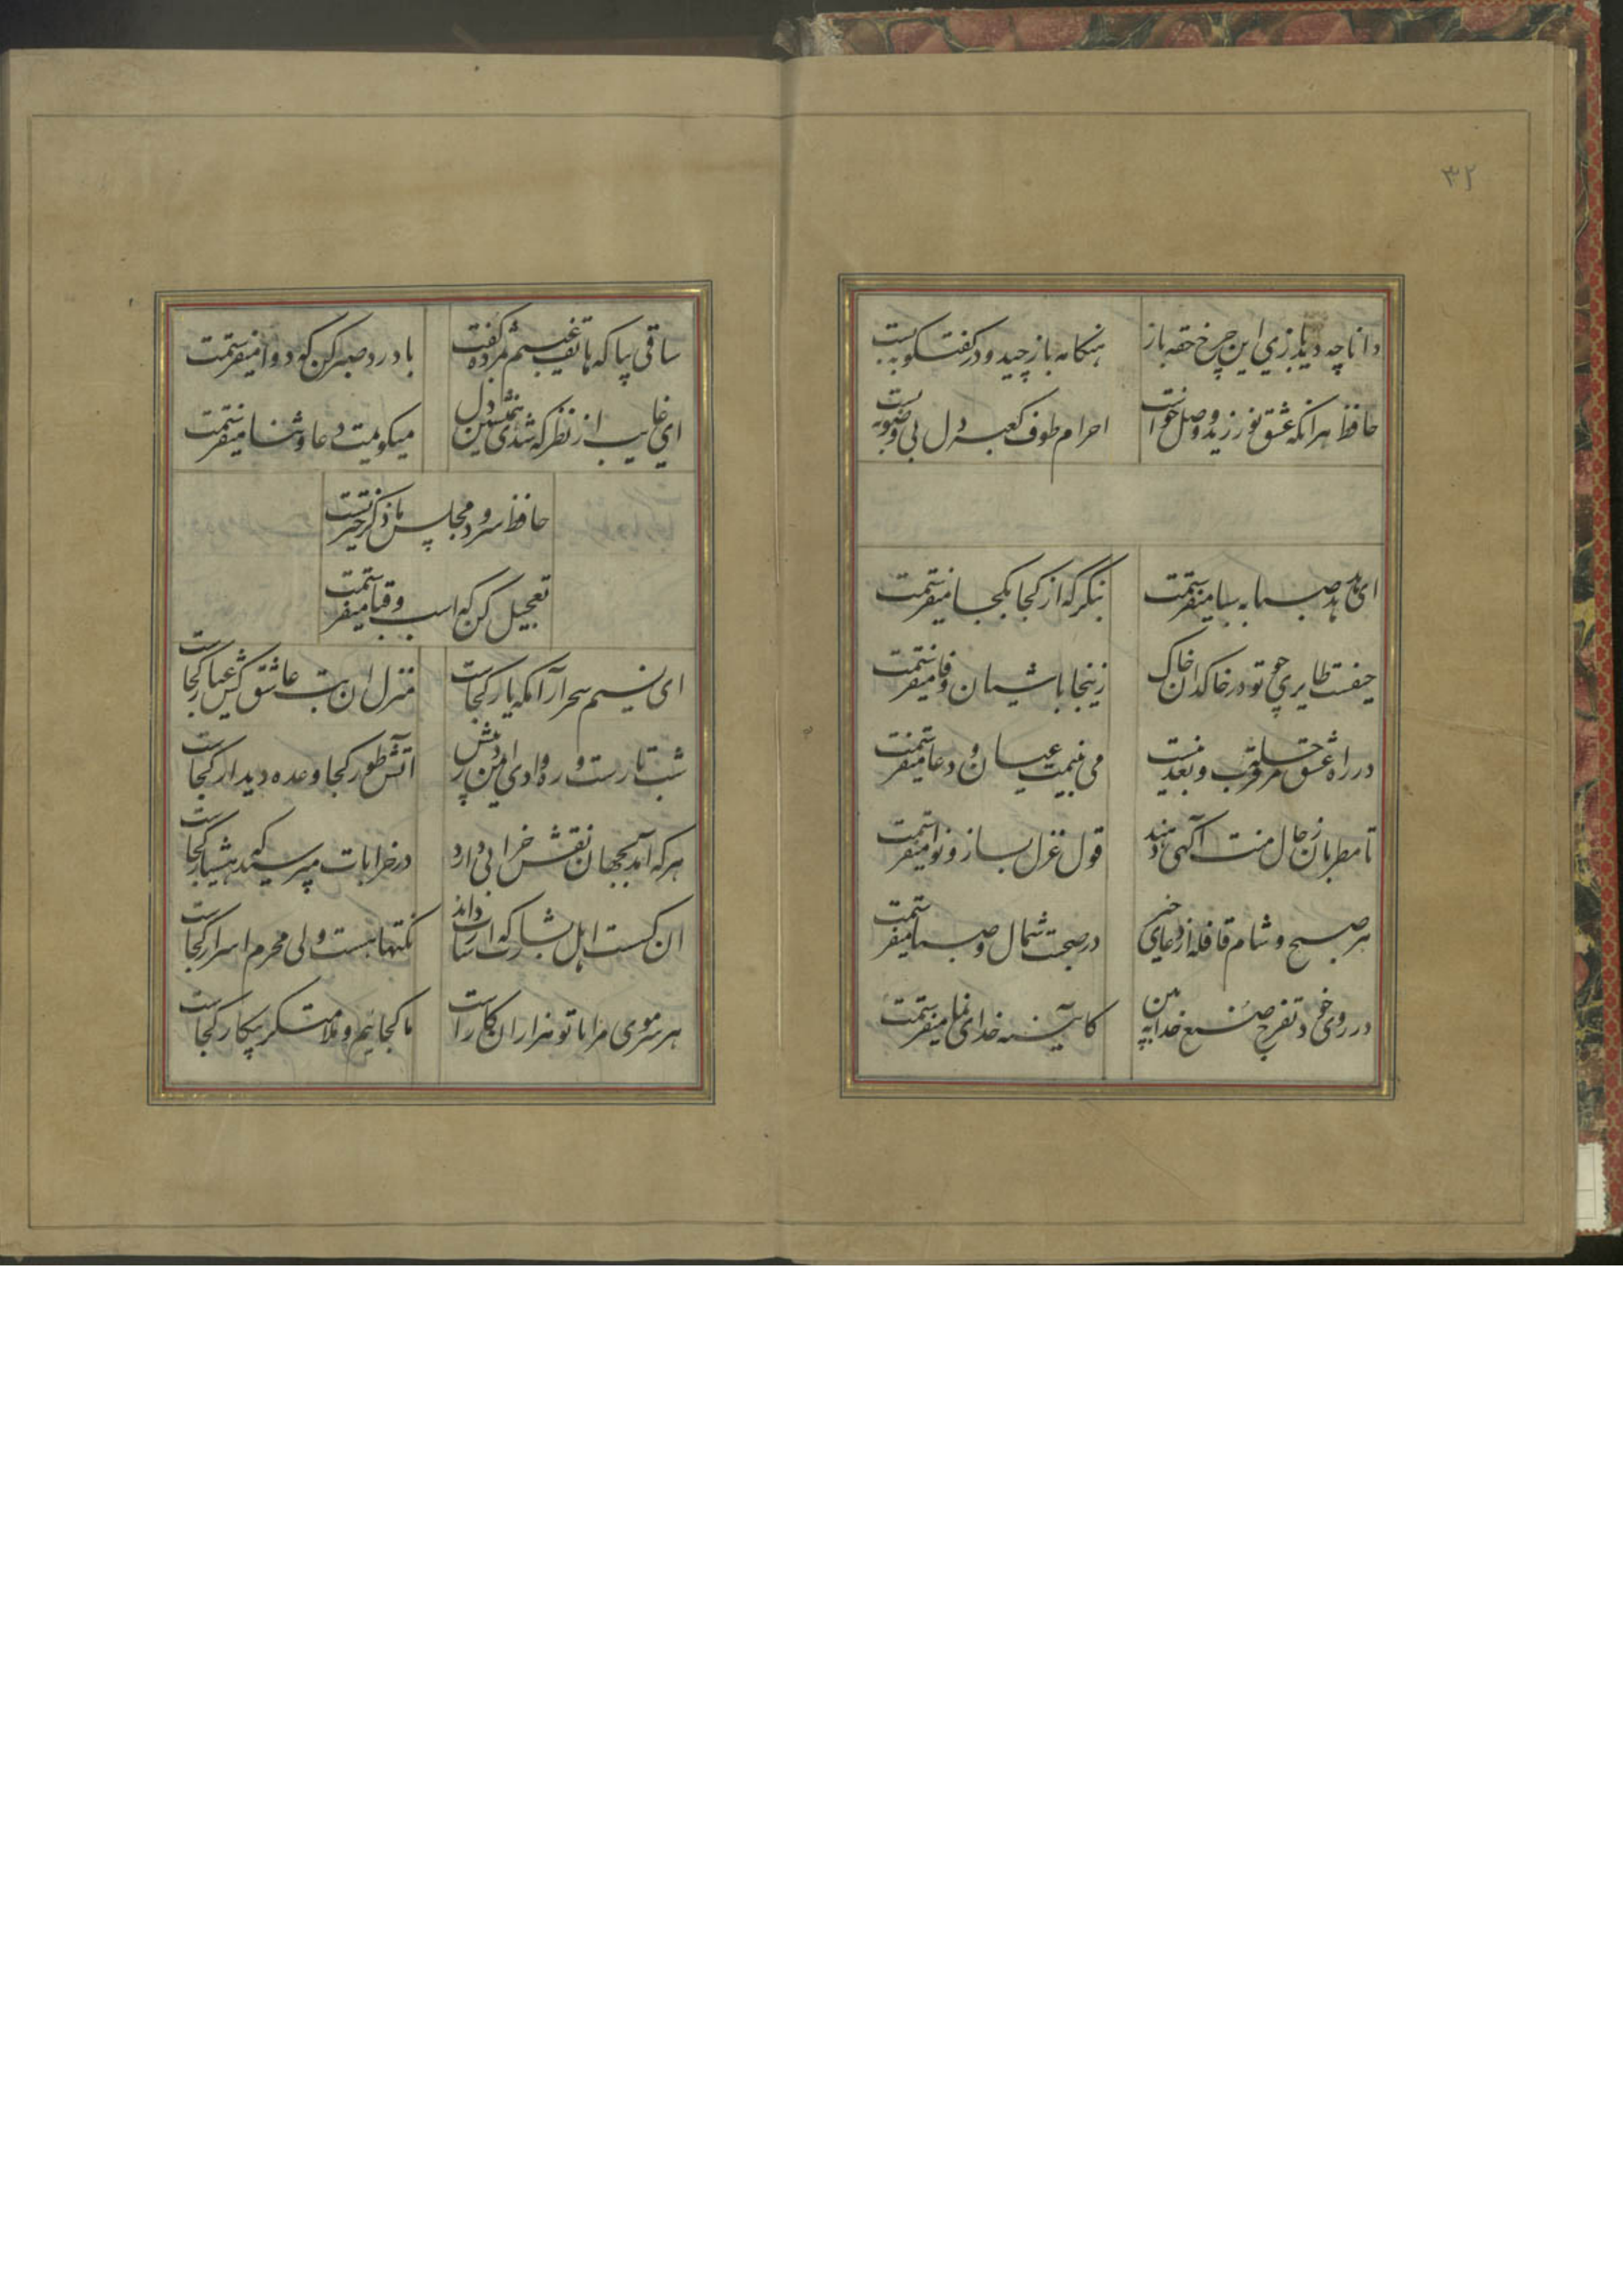 ۳۲
دانا چه دید بازی این چرخ حقه باز هنکامه باز چید و در کفتکو ببست
حافظ هرانکه عشق نورزید و وصل خواست احرام طوف کعبه دل بی وضو ببست
ای هدهد صبا به سبا میفرستمت بنکر که از کجا بکجا میفرستمت
حیفست طایری چو تو در خاکدان خاک زینجا باشیان وفا میفرستمت
در راه عشق مرحله قرب و بعد نیست می بینمت عیان و دعا میفرستمت
تا مطربان ز حال منت آکهی دهند قول غزل بساز و نوا میفرستمت
هر صبح و شام قافله از دعای خیر در صحبت شمال و صبا میفرستمت
در روی خود تفرج صنع خدای بین کآیینه خدای نما میفرستمت
ساقی بیا که هاتف غیبم بمژده کفت با درد صبر کن که دوا میفرستمت
ای غایب از نظر که شدی همنشین دل میکویمت دعا و ثنا میفرستمت
حافظ سرود مجلس ما ذکر خیر تست
تعجیل کن که اسب و قبا میفرستمت
ای نسیم سحر آرامکه یار کجاست منزل ان بت عاشق کش عیار کجاست
شب تارست و ره وادی ایمن در پیش آتش طور کجا وعده دیدار کجاست
هر که آمد بجهان نقش خرابی دارد در خرابات مپرسید که هشیار کجاست
ان کست اهل بشارت که اشارت داند نکتها هست ولی محرم اسرار کجاست
هر سر موی مرا با تو هزاران کارست ما کجاییم و ملامتکر بیکار کجاست